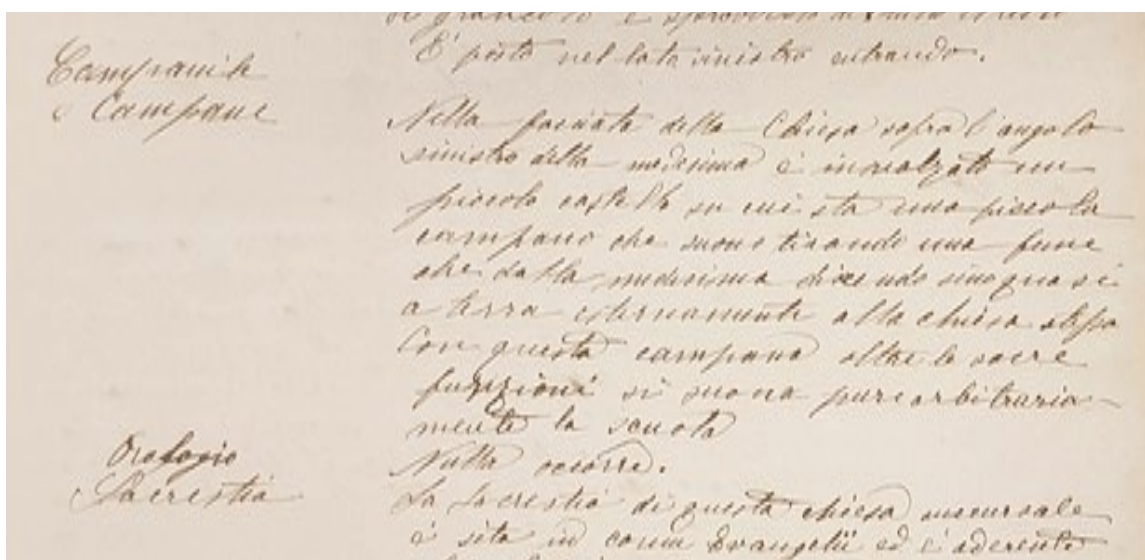 È posto nel lato sinistro entrando.
Campanile
e Campane
Nella facciata della Chiesa sopra l'angolo
sinistro della medesima è innalzato un
piccolo castello su cui sta una piccola
campana che suona tirando una fune
che dalla medesima discende sino quasi
a terra esternamente alla chiesa stessa
Con questa campana oltre le sacre
funzioni si suona pure arbitraria-
mente la scuola
Orologio
Nulla occorre.
Sacrestia
La Sacrestia di questa chiesa succursale
è sita in cornu Evangelii ed è aderente